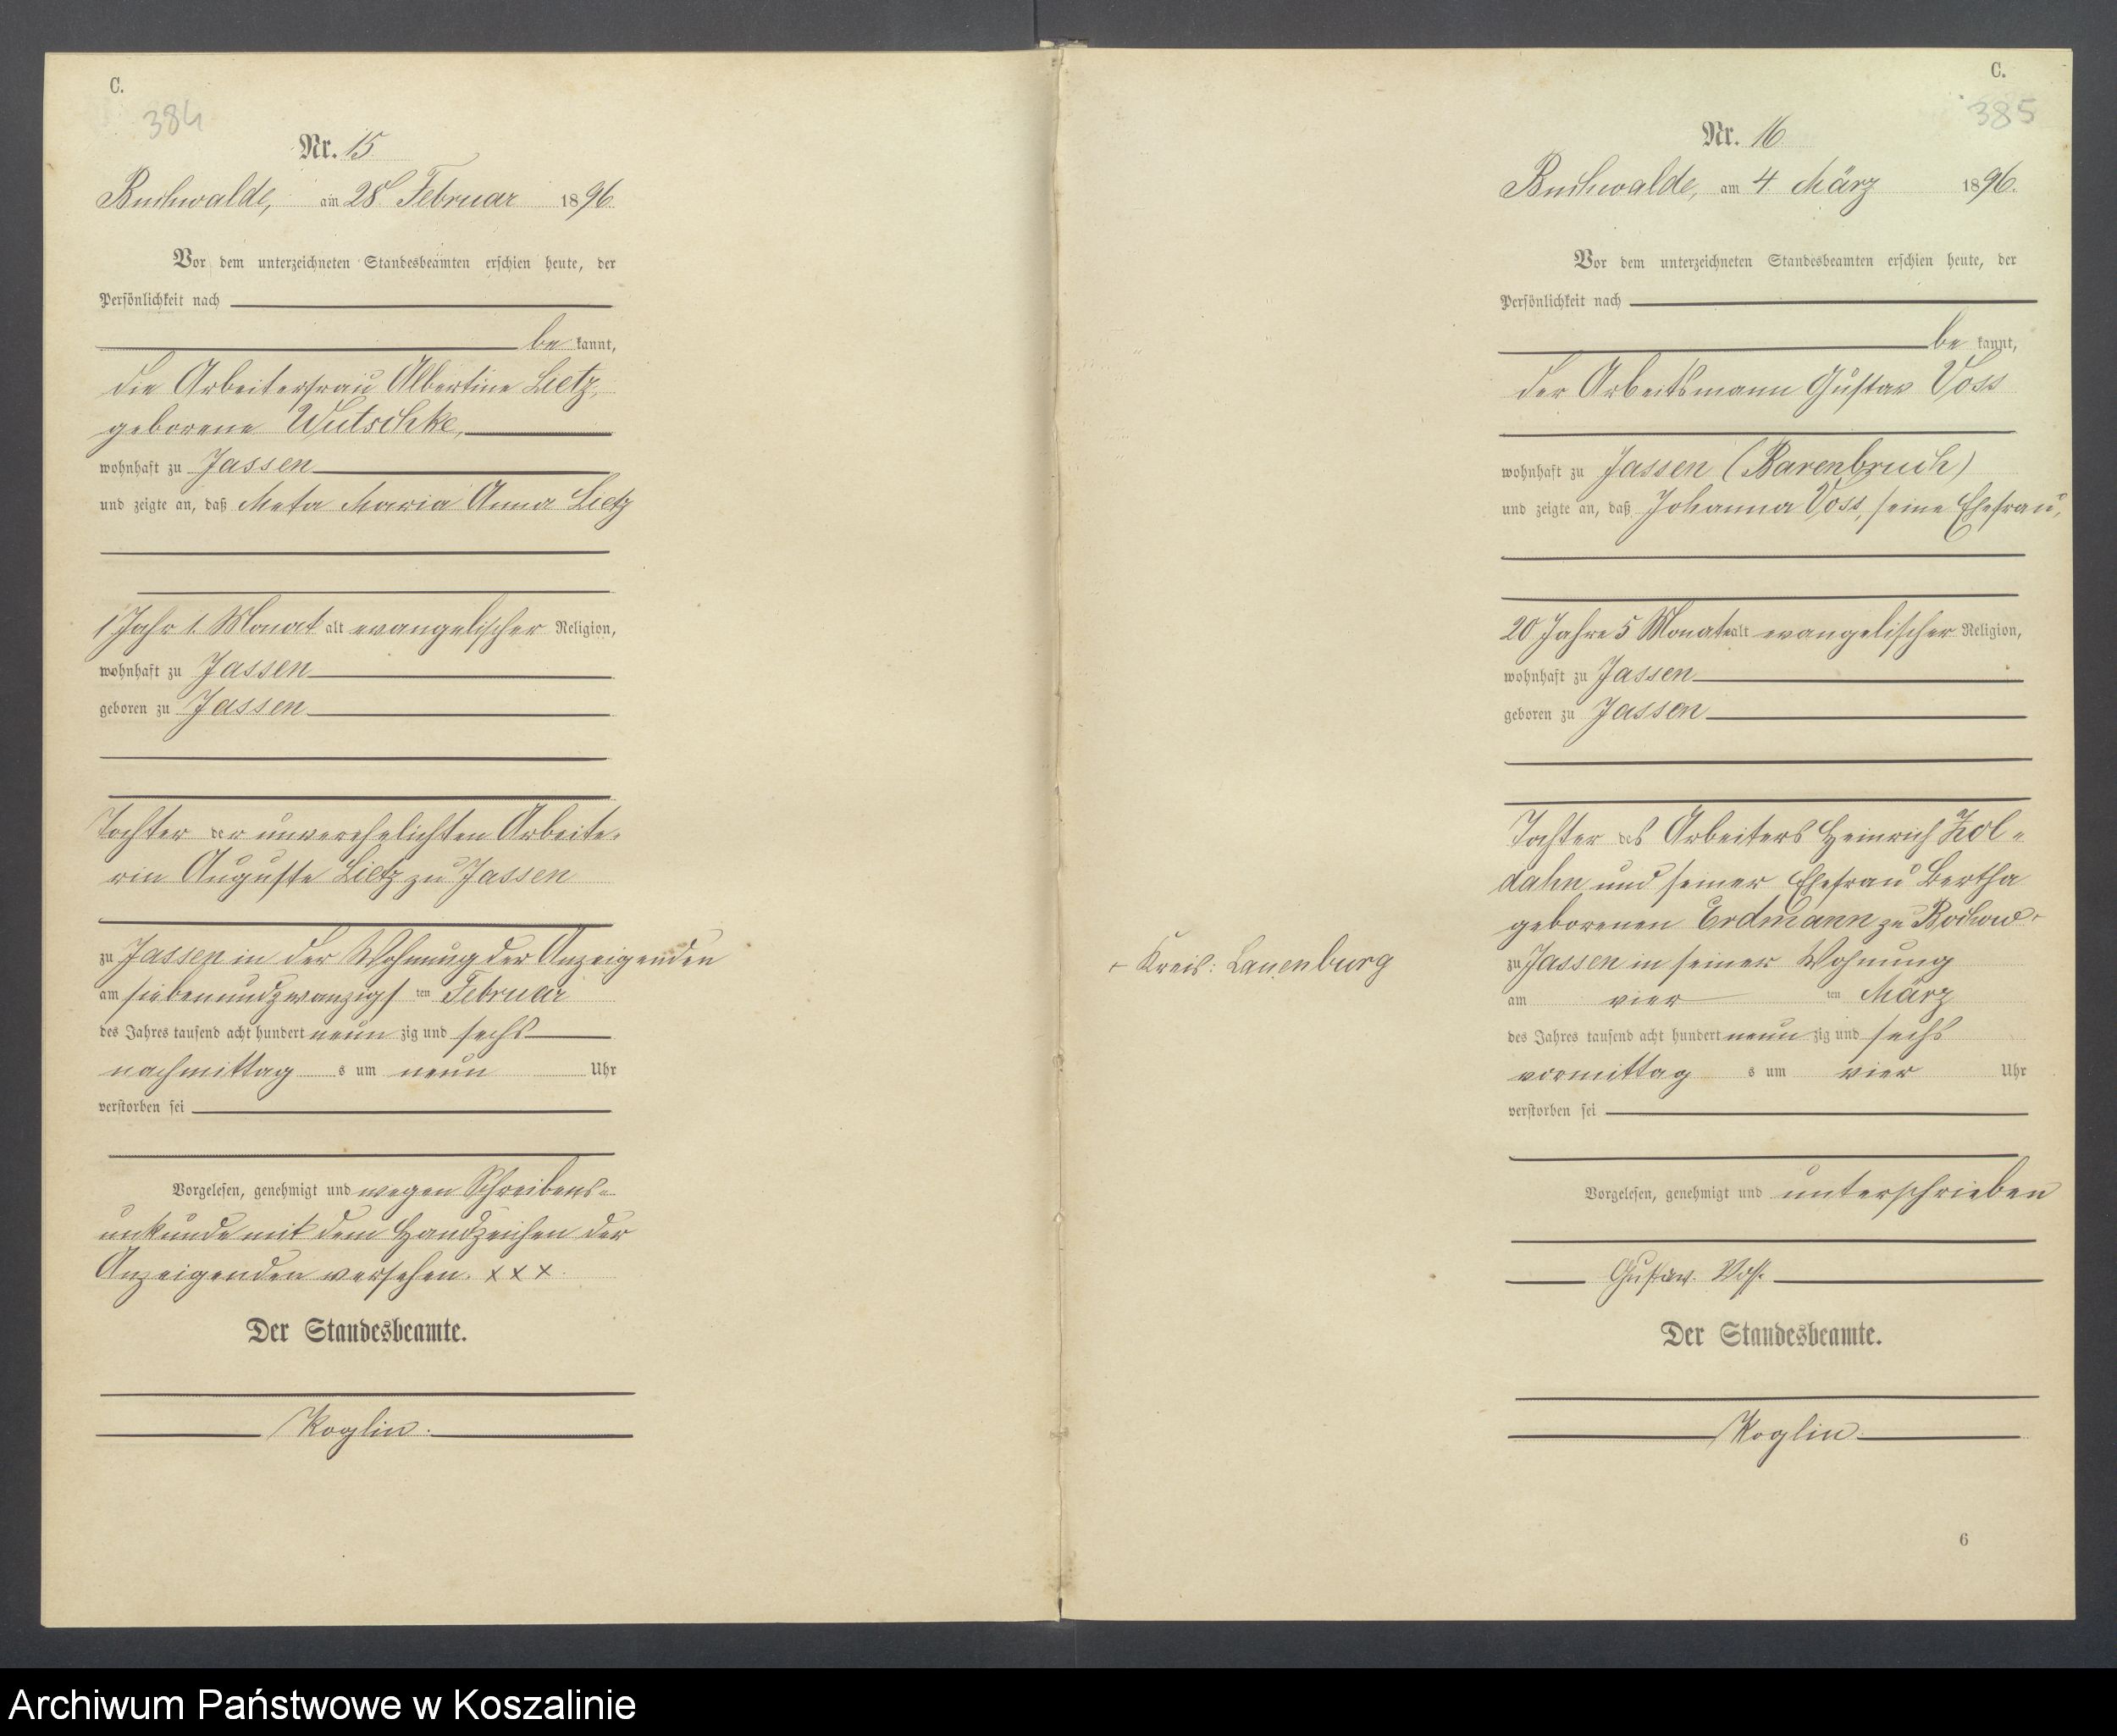 C.
384
Nr. 15
Buchwalde, am 28 Februar 1896.
Vor dem unterzeichneten Standesbeamten erschien heute, der
Persönlichkeit nach
be kannt,
die Arbeiterfrau Albertine Lietz,
geborene Wutschke,
wohnhaft zu Jassen
und zeigte an, daß Meta Maria Anna Lietz
1 Jahr 1 Monat alt evangelischer Religion,
wohnhaft zu Jassen
geboren zu Jassen
Tochter der unverehelichten Arbeite-
rin Auguste Lietz zu Jassen
zu Jassen in der Wohnung der Anzeigenden
am siebenundzwanzigsten Februar
des Jahres tausend acht hundert neunzig und sechs
nachmittags um neun Uhr
verstorben sei
Vorgelesen, genehmigt und wegen Schreibens-
unkunde mit dem Handzeichen der
Anzeigenden versehen. x x x.
Der Standesbeamte.
Koglin.
C.
385
Nr. 16
Buchwalde, am 4 März 1896.
Vor dem unterzeichneten Standesbeamten erschien heute, der
Persönlichkeit nach
be kannt,
der Arbeitsmann Gustav Voss
wohnhaft zu Jassen (Barenbruch)
und zeigte an, daß Johanna Voss, seine Ehefrau,
20 Jahre 5 Monate alt evangelischer Religion,
wohnhaft zu Jassen
geboren zu Jassen
Tochter des Arbeiters Heinrich Kol-
dahn und seiner Ehefrau Bertha
geborenen Erdmann zu Bochow
Kreis: Lauenburg
zu Jassen in seiner Wohnung
am vierten März
des Jahres tausend acht hundert neunzig und sechs
vormittags um vier Uhr
verstorben sei
Vorgelesen, genehmigt und unterschrieben
Gustav. Voss.
Der Standesbeamte.
Koglin.
6
Archiwum Państwowe w Koszalinie